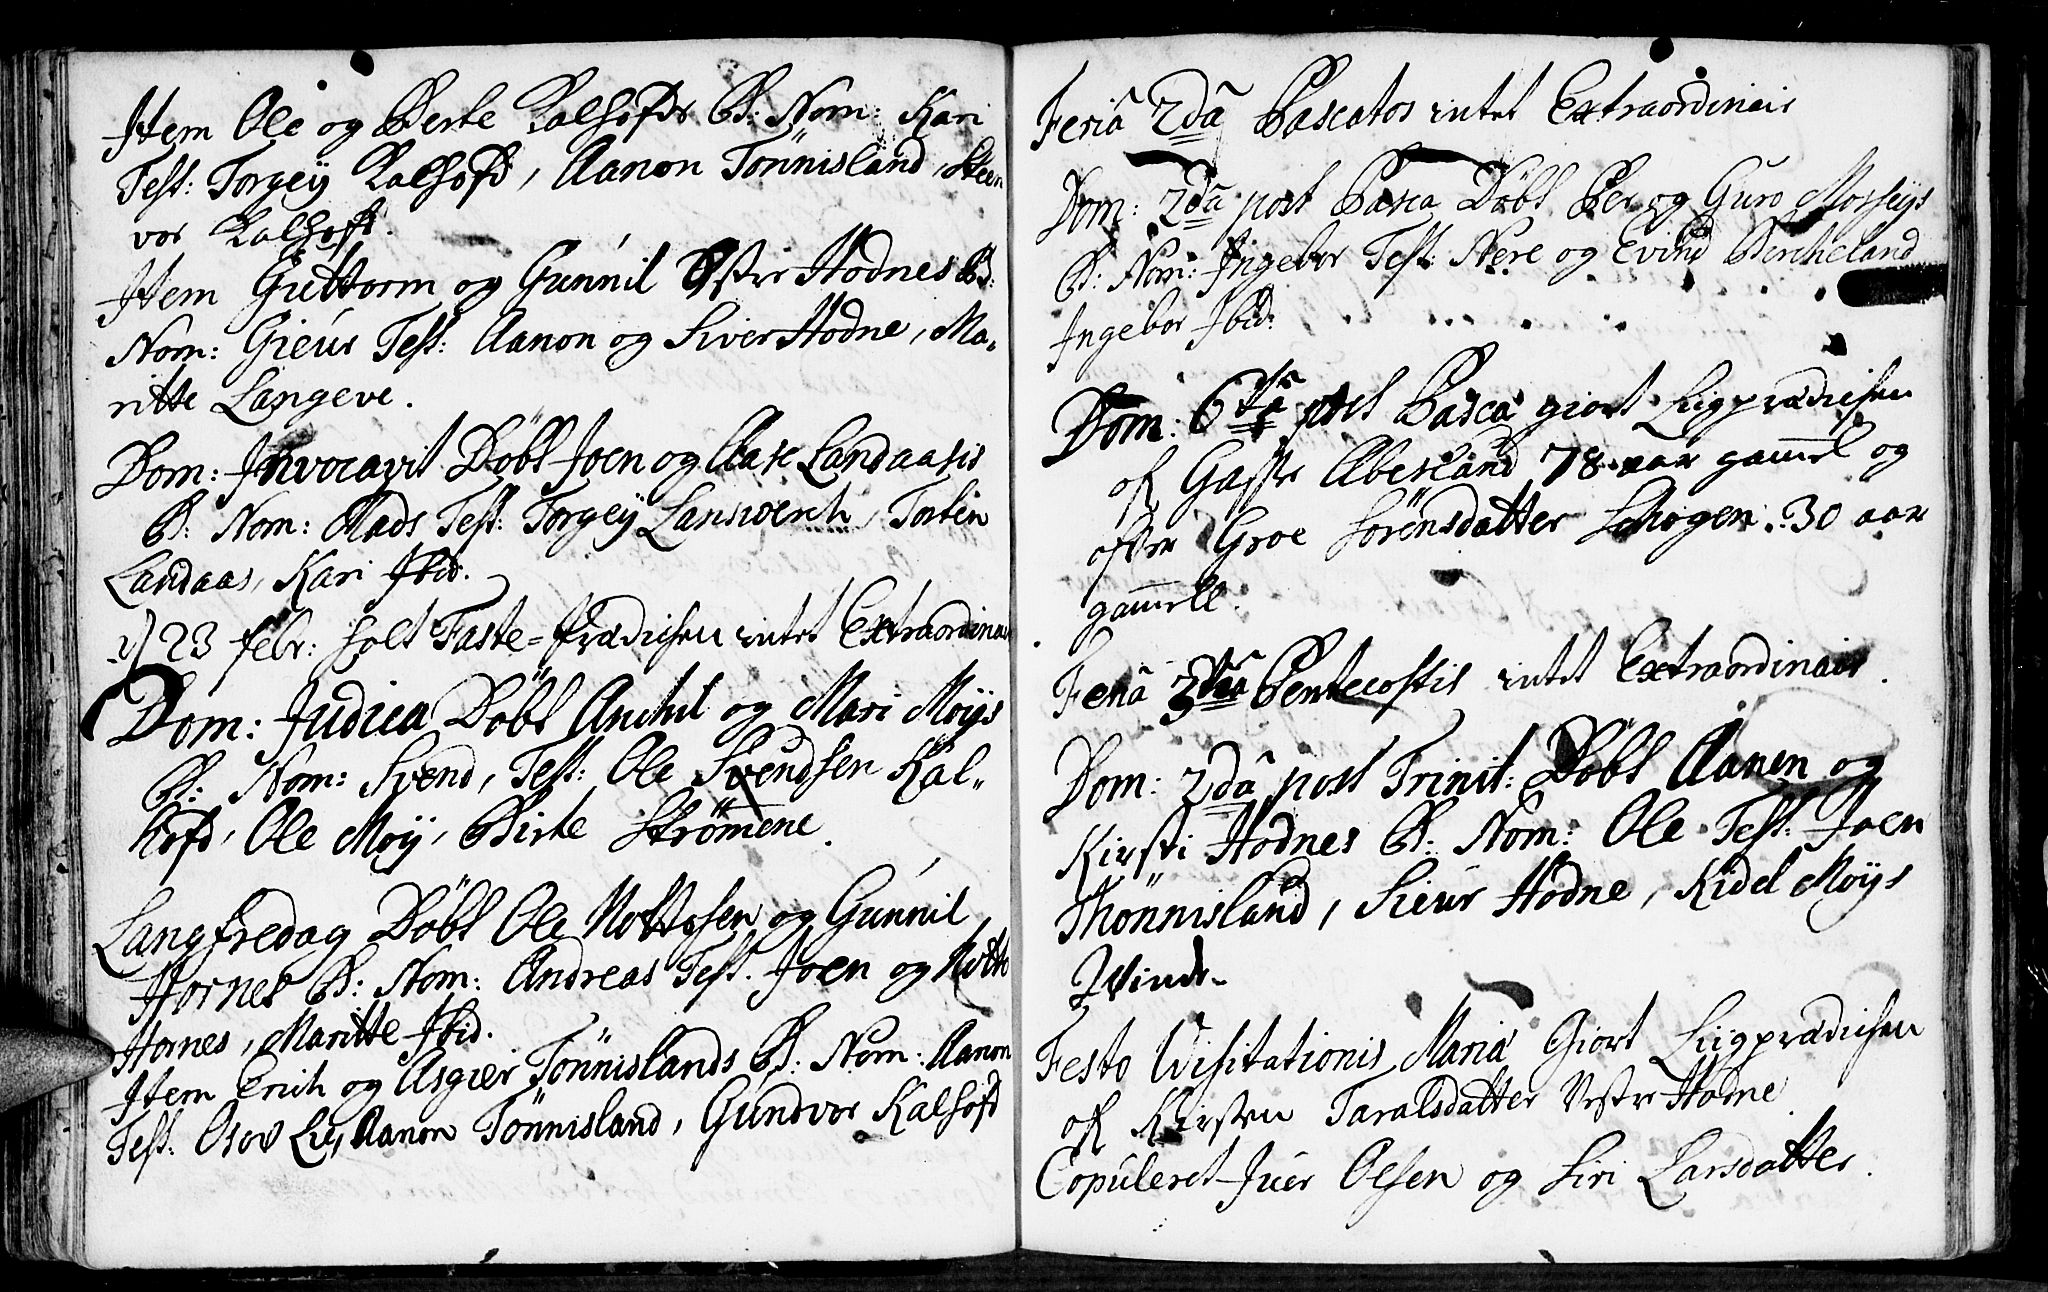 Item Ole og Berte Kalhofds B: Nom: Kari
Test: Torgey Kalhofd, Aanon Tönnisland, Steen
vor Kalhofd.
Item Guttorm og Gunnil Østre Hodnes B:
Nom: Gieur Test: Aanon og Siver Hodne, Ma-
ritte Langeve.
Dom: Invocavit Döbt Joen og Aase Landaasis
B: Nom: Mads Test: Torgey Lansverch, Torbin
Landaas, Kari Ibid.
d) 23 febr: holt Faste-Prædichen intet Extraordinair
Dom: Judica Döbt Anchil og Mari Möÿs
B: Nom: Svend, Test: Ole Svendsen Kal-
hofd, Ole Moÿ, Birte Strømene.
Langfredag Döbt Ole Nottosen og Gunnil
Hornes B: Nom: Andreas Test. Joen og Notto
Hornes, Maritte Ibid.
Item Erich og Asgier Tönnislands B: Nom: Aanon
Test: Osov Lie, Aanon Tönnisland, Gundvor Kalhofd
Feria 2da Pascatos intet Extraordinair
Dom: 2da post Pasca Döbt Per og Guro Mosseÿs
B: Nom: Ingebor Test: Nere og Evind Bercheland
Ingebor Ibid:
Dom: 6ta post Pasca giort Liigprædichen
of Gasse Abesland 78 aar gamel og
ofver Groe Sörensdatter Schogen 30 aar
gamell.
Feria 3tia Pentecostis intet Extraordinair.
Dom: 2da post Trinit: Döbt Aanen og
Kirsti Hodnes B: Nom: Ole Test: Joen
Thönnisland, Sieur Hodne, Kidel Möÿs
Qvinde
Festo Visitationis Maria Giort Liigprædichen
of Kirsten Taralsdatter Vestre Hodne
Copuleret Iver Olsen og Siri Larsdatter.